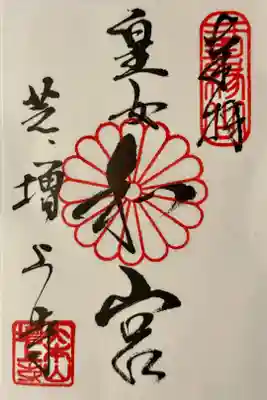 奉拝
皇女和宮
芝増上寺